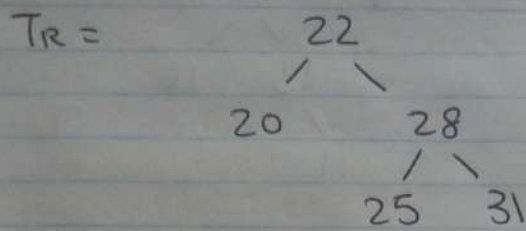 TR = 22
20 28
25 31